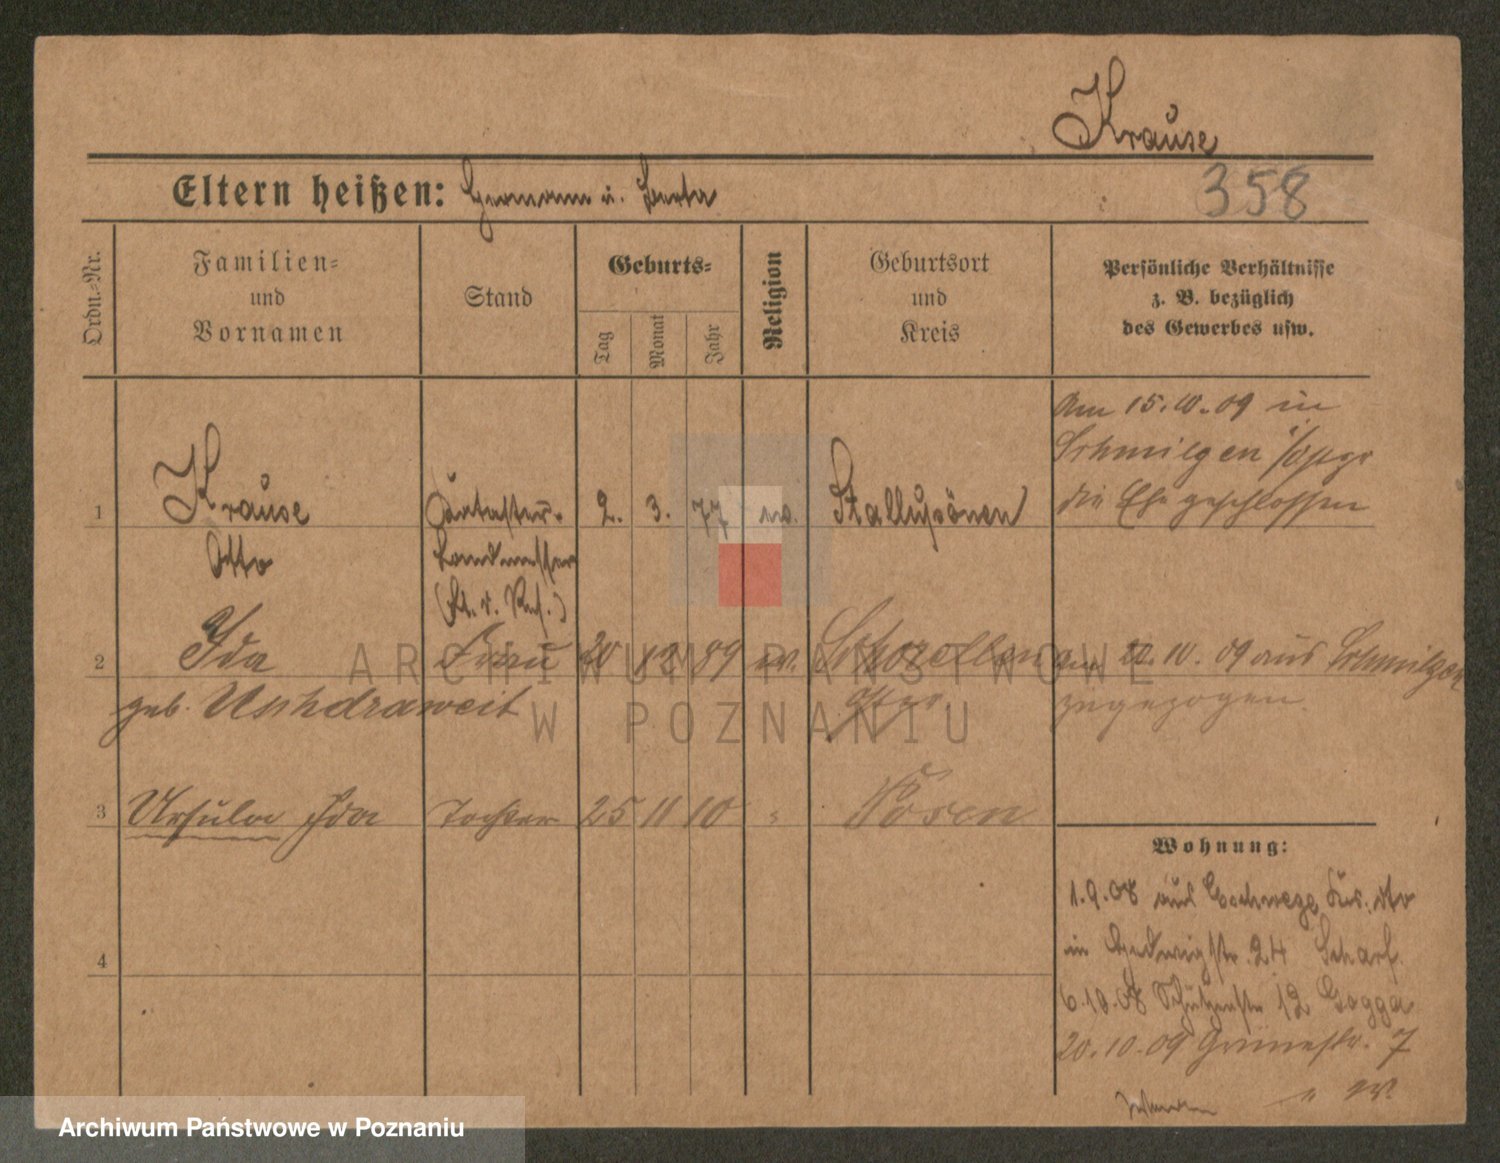 Krause
Eltern heißen: Hermann u. Berta
358
Ordn.-Nr.
Familien-
und
Vornamen
Stand
Geburts-
Tag
Monat
Jahr
Religion
Geburtsort
und
Kreis
Persönliche Verhältnisse
z. B. bezüglich
des Gewerbes usw.
Am 15.10.09 in
Schmilgen
die Ehe geschlossen
1 Krause Kataster- 2. 3. 77 ev. Stallupönen
Otto Landmesser
2 Ida Frau 20 12 89 ev. Schorellen am 20.10.09 aus Schmilgen
geb. Uschdraweit zugezogen.
3 Ursula Ida Tochter 25 11 10 Posen
4
Wohnung:
1.9.08 aus Eschwege
in Hedwigstr. 24 Scharf.
6.10.08 Schützenstr 12 Gagga
20.10.09 7
ARCHIWUM PAŃSTWOWE
W POZNANIU
Archiwum Państwowe w Poznaniu